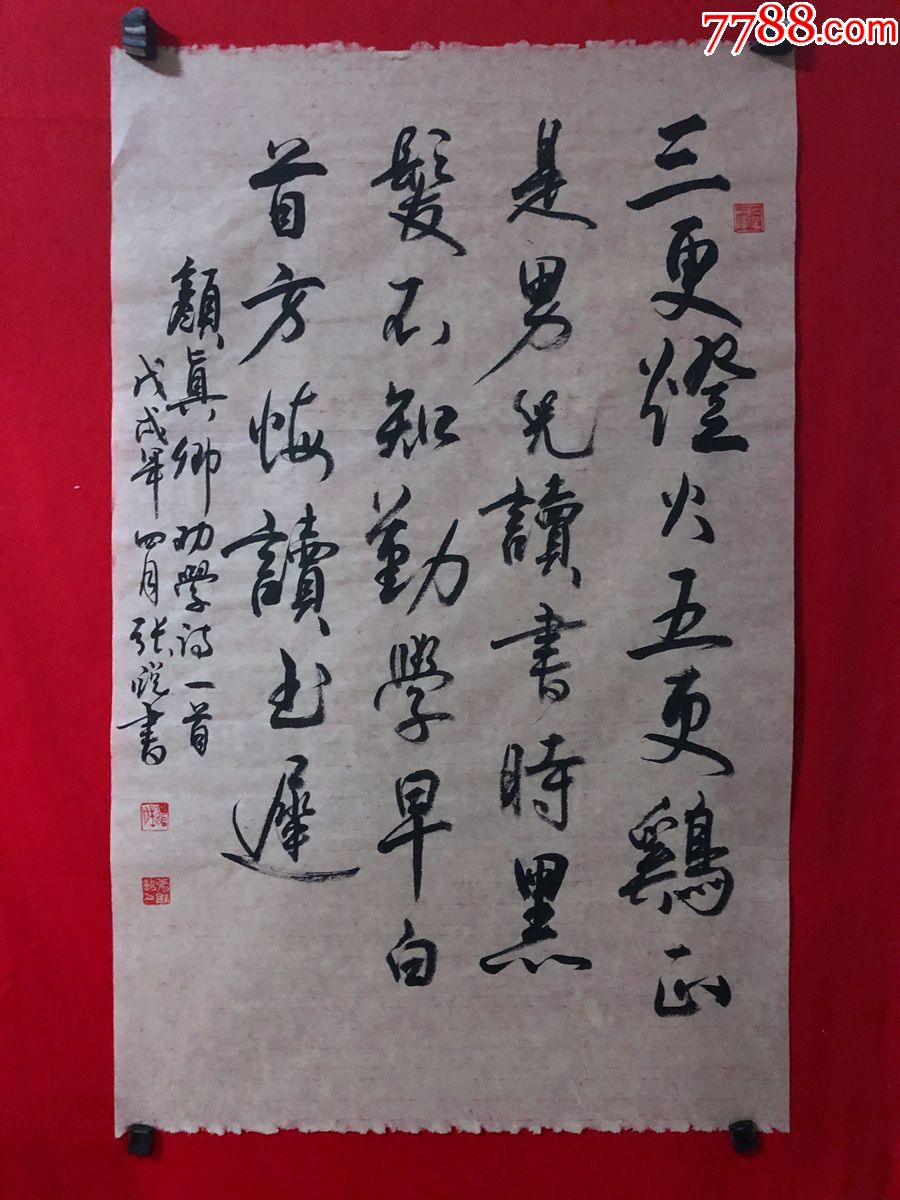 7788.com
三更燈火五更鷄正
是男児讀書時黑
髮不知勤學早白
首方悔讀书遲
顏真卿劝學詩一首
戊戌年四月張悦書